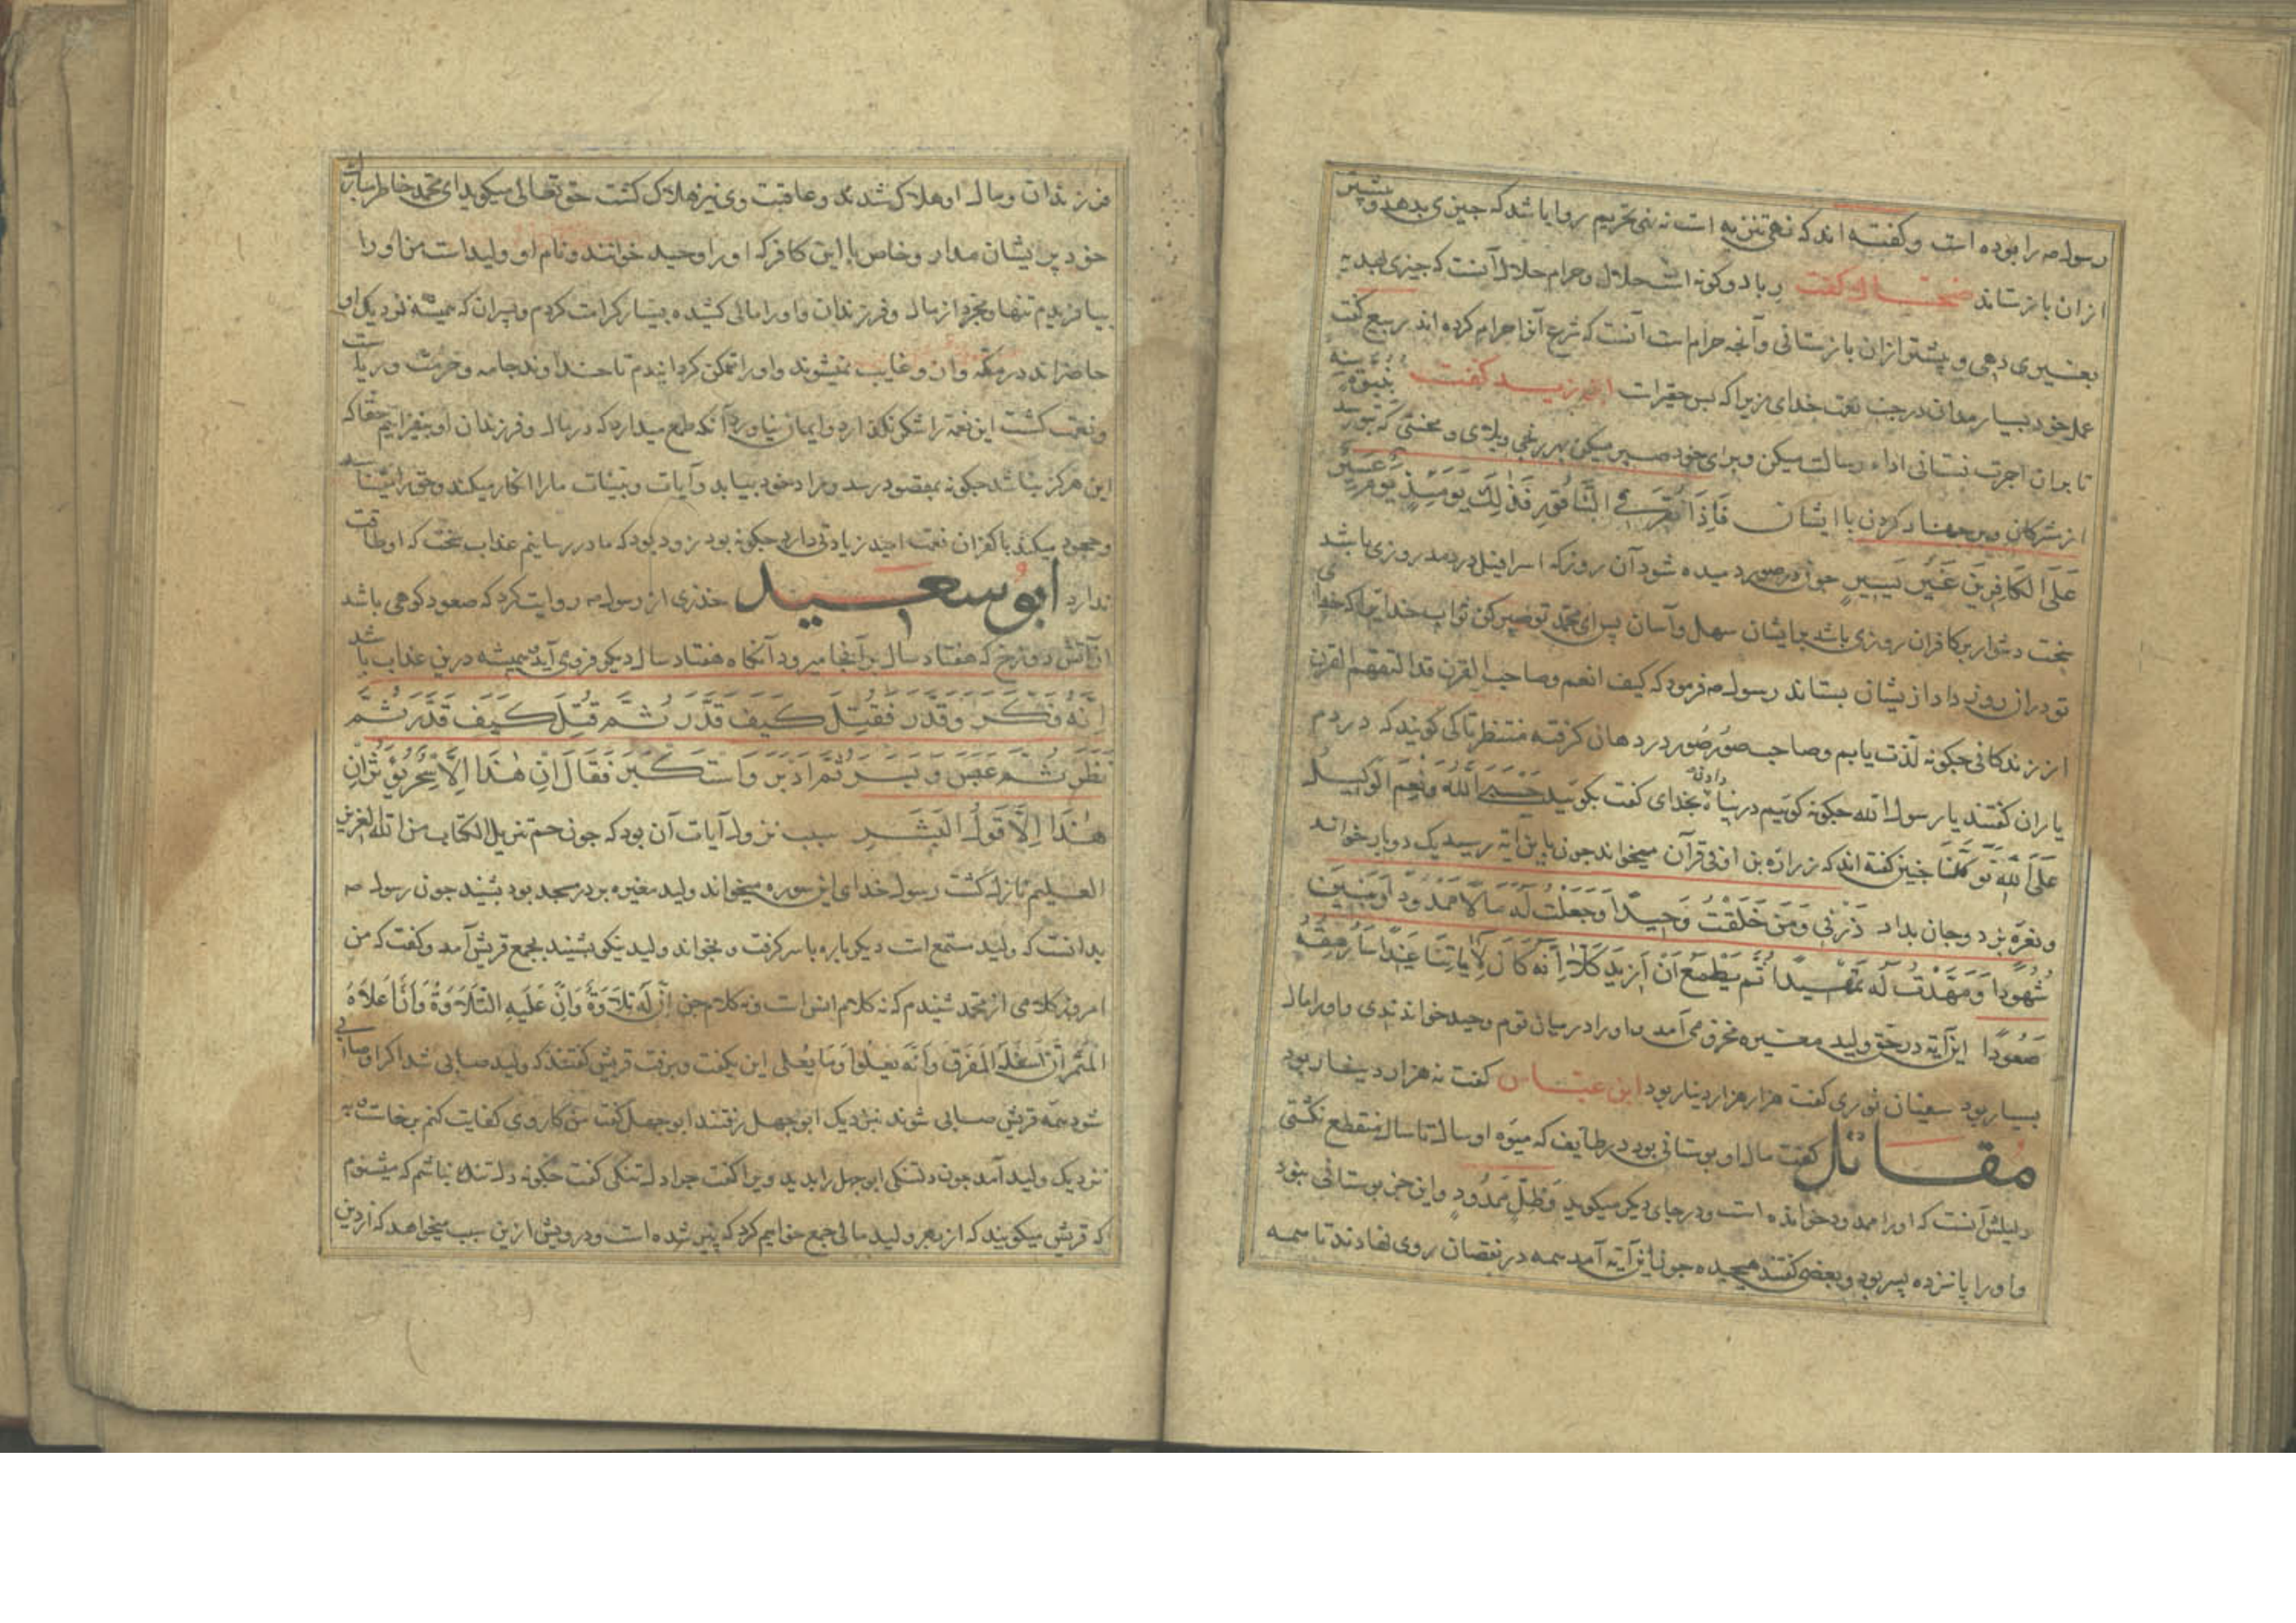 رسول صه را بوده است و کفته اند که نهی تنزیه است نه نهی تحریم روا باشد که جیزی بدهد و بیشتر
از ان باز ستاند ضحاک کفت ربا دو کونه است حلال و حرام حلال آنست که جیزی بهدیه
بغیری دهی و بیشتر از ان باز ستانی و آنچه حرام است آنست که شرع آنرا حرام کرده اند ربیع کفت
عمل خود بسیار مدان در جنب نعمت خدای زیرا که بس حقیرات ابن زید کفت
تا بران اجرت نستانی اداء رسالت میکن و برای خود صبر میکن بهر رنجی و بلای و محنتی که بتو رسد
از مشرکان و بر جهاد کردن با ایشان فَاِذَا نُقِرَ فِی النَّاقُورِ فَذٰلِكَ یَوْمَئِذٍ یَوْمٌ عَسِیرٌ
عَلَی الکَافِرِینَ غَیْرُ یَسِیرٍ جون در صور دمیده شود آن روز که اسرافیل در دمد روزی باشد
سخت دشوار بر کافران روزی باشد بر ایشان سهل و آسان پس ای محمد تو صبر کن ثواب خدای را که خدای
تو دران روز داد از یشان بستاند رسول صه فرمود که کیف انعم و صاحب القرن قد التقم القرن
از زندکانی جکونه لذت یابم و صاحب صور صُور در دهان کرفته منتظر تا کی کویند که دردم
یاران کفتند یا رسول الله جکونه کوییم در پناه دادن بخدای کفت بکویید حَسْبِیَ اللّٰهُ وَنِعْمَ الوَکِیلُ
عَلَی اللّٰهِ تَوَکَّلْنَا جنین کفته اند که زراره بن اوفی قرآن میخواند جون باین آیة رسید یک دو بار خواند
و نعره بزد و جان بداد ذَرْنِی وَمَنْ خَلَقْتُ وَحِیدًا وَجَعَلْتُ لَهُ مَالًا مَمْدُودًا وَبَنِینَ
شُهُودًا وَمَهَّدْتُ لَهُ تَمْهِیدًا ثُمَّ یَطْمَعُ اَنْ اَزِیدَ کَلَّا اِنَّهُ کَانَ لِآیَاتِنَا عَنِیدًا سَاُرْهِقُهُ
صَعُودًا این آیة در حق ولید مغیره مخزومی آمد و او را در میان قوم وحید خواندندی و او را مال
بسیار بود سفیان ثوری کفت هزار هزار دینار بود ابن عباس کفت نه هزار دینار بود
مقاتل کفت مال او بوستانی بود در طایف که میوه او سال تا سال منقطع نکشتی
دلیلش آنست که او را ممدود خوانده است و در جای دیکر میکوید وَظِلٍّ مَمْدُودٍ و این جز بوستانی نبود
و او را پانزده پسر بود و بعضی کفتند هیجده جون این آیة آمد همه در نقصان روی نهادند تا همه
فرزندان و مال او هلاک شدند و عاقبت وی نیز هلاک کشت حق تعالی میکوید ای محمد خاطر مبارک
خود پریشان مدار و خاص با این کافر که او را وحید خوانند و نام او ولید است من او را
بیافریدم تنها و مجرد از مال و فرزندان و او را مالی کشیده بسیار کرامت کردم و پسران که همیشه نزدیک او
حاضر اند در مکه و ازو غایب نمیشوند و او را تمکن کردانیدم تا خداوند جامه و حرمت و ریاست
و نعمت کشت این نعمة را شکر نکذارد و ایمان نیاورد آنکه طمع میدارد که در مال و فرزندان او بیفزاییم حقا که
این هرکز نباشد جکونه بمقصود رسد و مراد خود بیابد و آیات و بینات ما را انکار میکند و حق را نشناسد
و جحود میکند با کفران نعمت امید زیادتی دارد جکونه بود زود بود که ما در رسانیم عذاب سخت که او طاقت
ندارد ابو سعید خدری از رسول صه روایت کرد که صعود کوهی باشد
از آتش دوزخ که هفتاد سال بر آنجا میرود آنکاه هفتاد سال دیکر فروی آید همیشه درین عذاب باشد
اِنَّهُ فَکَّرَ وَقَدَّرَ فَقُتِلَ کَیْفَ قَدَّرَ ثُمَّ قُتِلَ کَیْفَ قَدَّرَ ثُمَّ
نَظَرَ ثُمَّ عَبَسَ وَبَسَرَ ثُمَّ اَدْبَرَ وَاسْتَکْبَرَ فَقَالَ اِنْ هٰذَا اِلَّا سِحْرٌ یُؤْثَرُ اِنْ
هٰذَا اِلَّا قَوْلُ الْبَشَرِ سبب نزول آیات آن بود که جون حم تنزیل الکتاب من الله العزیز
العلیم نازل کشت رسول خدای این سوره میخواند ولید مغیره بر در مسجد بود بشنید جون رسول صه
بدانست که ولید مستمع است دیکر باره با سر کرفت و بخواند ولید نیکو بشنید بمجمع قریش آمد و کفت که من
امروز کلامی از محمد شنیدم که نه کلام انس است و نه کلام جن اِنَّ لَهُ لَحَلَاوَةً وَاِنَّ عَلَیْهِ وَاِنَّ اَعْلَاهُ
لمثمر و ان اسفله لمغرق وَاَنَّهُ یعلوا وَمَا یُعلی این بکفت و برفت قریش کفتند که ولید صابی شد اکر او صابی
شود همه قریش صابی شوند نزدیک ابو جهل رفتند ابو جهل کفت من کار وی کفایت کنم برخاست به
نزدیک ولید آمد جون دلتنکی ابو جهل را بدید ویرا کفت جرا دلتنکی کفت جکونه دلتنک نباشم که میشنوم
که قریش میکویند که از بهر ولید مالی جمع خواهیم کرد که پیر شده است و درویش از ین سبب میخواهد که از دین